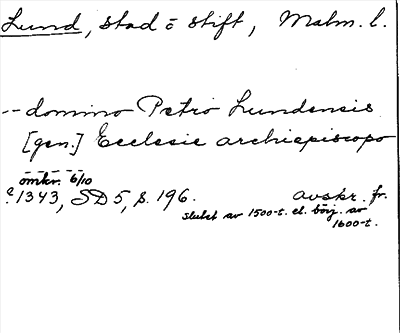 Lund, stad o stift, Malm. l.
-- domino Petro Lundensis
[gen.] Ecclesie archiepiscopo
omkr. 6/10
1343, SD 5, s. 196. avskr. fr.
slutet av 1500-t. el. börj. av
1600-t.